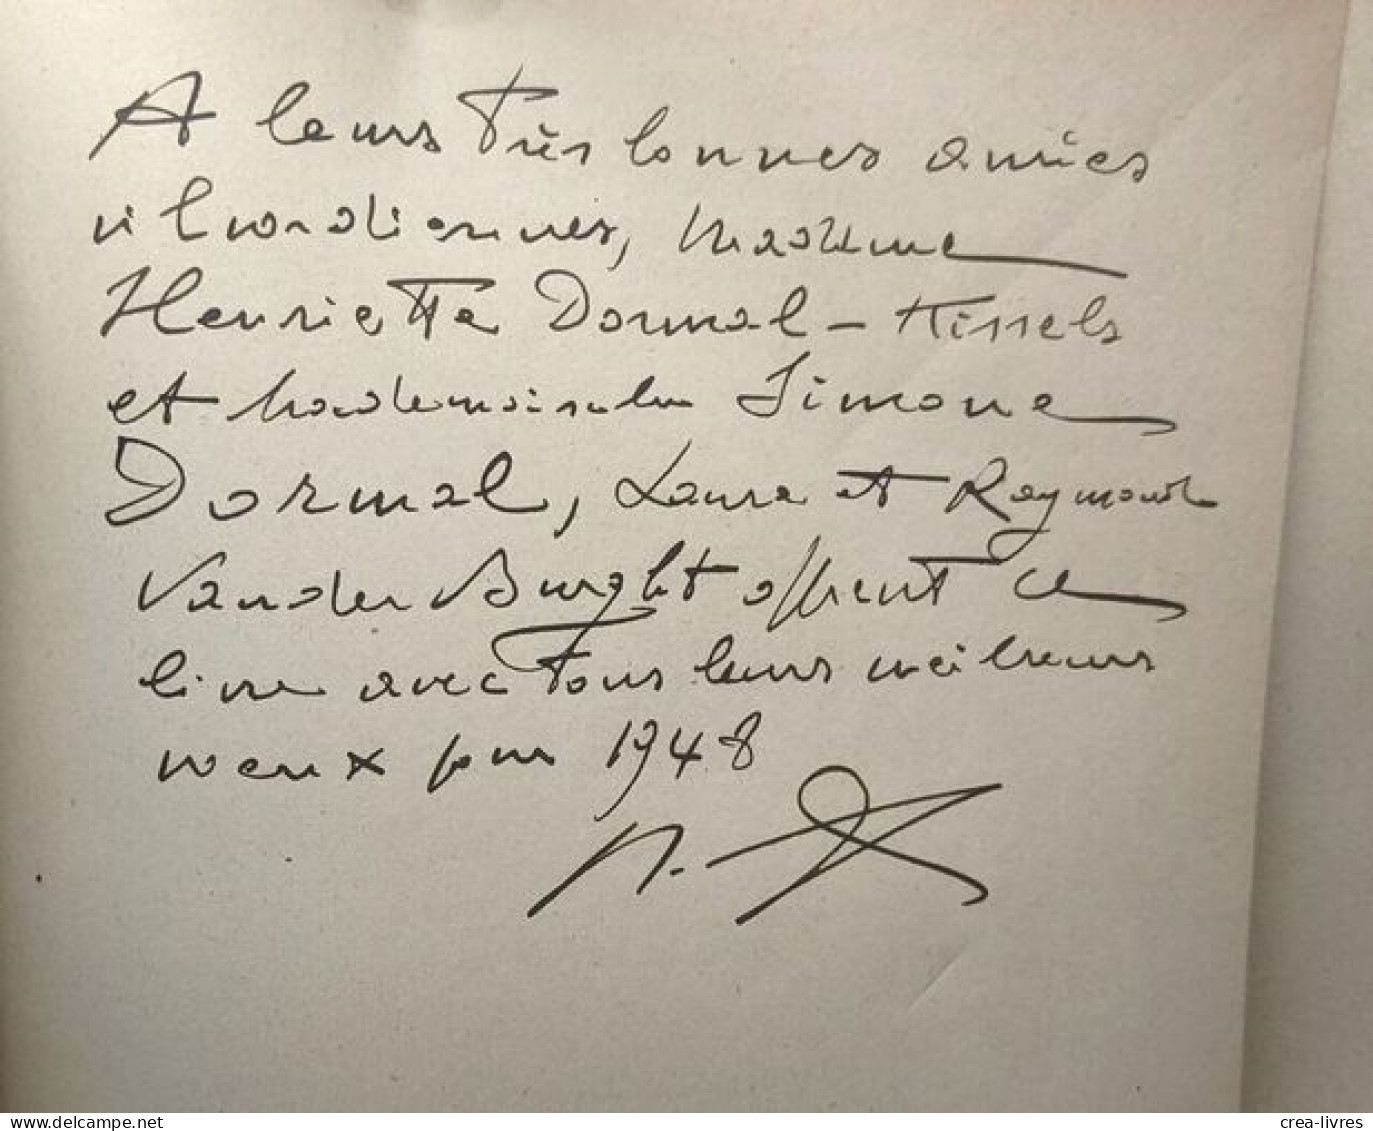 A leurs très bonnes amies
vilvordiennes, Madame
Henriette Dormal-Tissels
et Mademoiselle Simone
Dormal, Laure et Raymond
Vander Burght offrent ce
livre avec tous leurs meilleurs
voeux pour 1948
delcampe.net
crea-livres